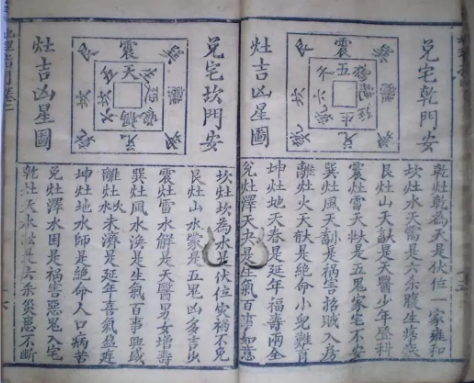 兌宅乾門安
震
五
生
兌
灶吉凶星圖
乾灶乾為天是伏位一家雍和
坎灶水天需是六杀腹生病疾
艮灶山天是天醫少年登科
震灶雷天壯是五鬼家宅不安
巽灶風天是禍害招賊入房
離灶火天是絶命小兒難育
坤灶地天泰是延年福壽兩全
兌灶澤天夬是生氣百事如意
兌宅坎門安
震
天
兌
灶吉凶星圖
坎灶坎為水是伏位灾禍不免
艮灶山水蒙是五鬼凶多吉少
震灶雷水解是天醫男女增壽
巽灶風水渙是生氣百事興盛
離灶火水未濟是延年喜氣盈
坤灶地水師是絶命人口病苦
兌灶澤水困是禍害惡鬼入宅
乾灶天水訟是六杀災惡不断